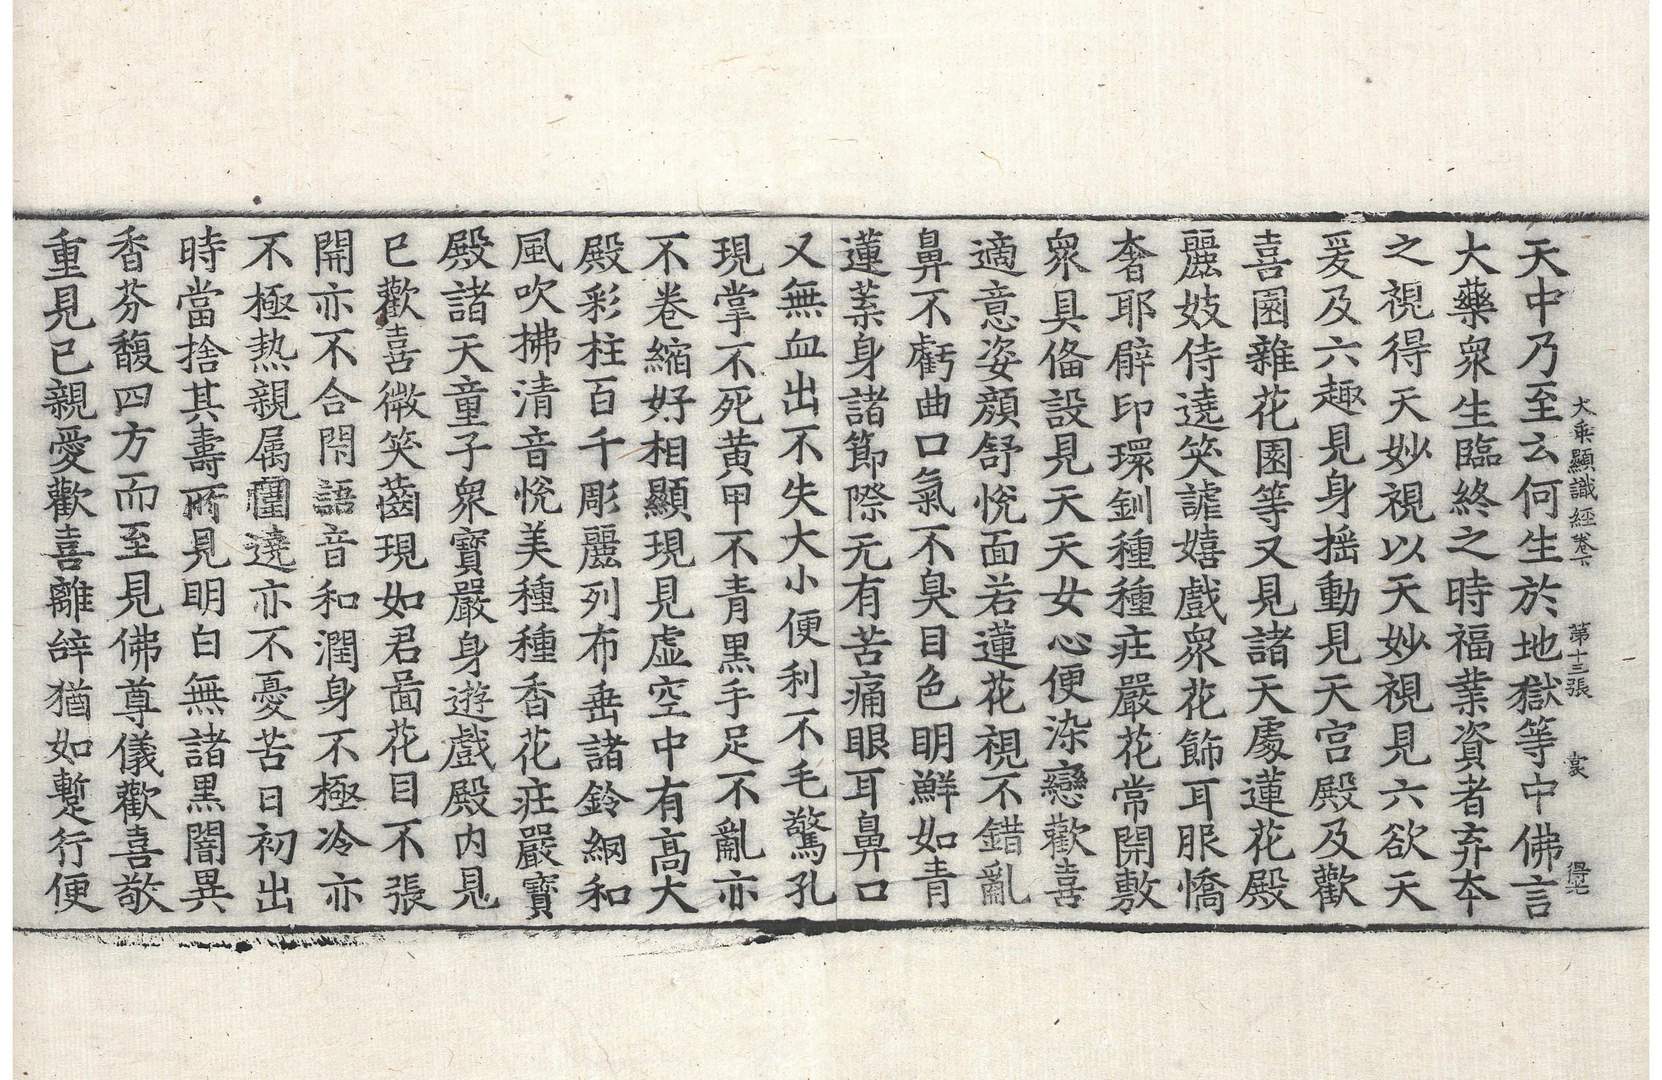 大乘顯識經卷下 第十三張
天中乃至云何生於地獄等中佛言
大藥衆生臨終之時福業資者弃夲
之視得天妙視以天妙視見六欲天
爰及六趣見身揺動見天宫殿及歡
喜園雜花園等又見諸天處蓮花殿
麗妓侍遶笑謔嬉戲衆花飾耳服憍
奢耶臂印環釧種種庄嚴花常開敷
衆具俻設見天天女心便染戀歡喜
適意姿顔舒悅面若蓮花視不錯亂
鼻不虧曲口氣不臭目色明鮮如青
蓮葉身諸節際无有苦痛眼耳鼻口
又無血出不失大小便利不毛驚孔
現掌不死黄甲不青黑手足不亂亦
不卷縮好相顯現見虚空中有高大
殿彩柱百千彫麗列布垂諸鈴網和
風吹拂清音悅美種種香花庄嚴寶
殿諸天童子衆寶嚴身遊戲殿内見
已歡喜微笑齒現如君啚花目不張
開亦不合閇語音和潤身不極冷亦
不極热親属圍遶亦不憂苦日初出
時當捨其壽所見明白無諸黑闇異
香芬馥四方而至見佛尊儀歡喜敬
重見已親愛歡喜離辝猶如暫行便